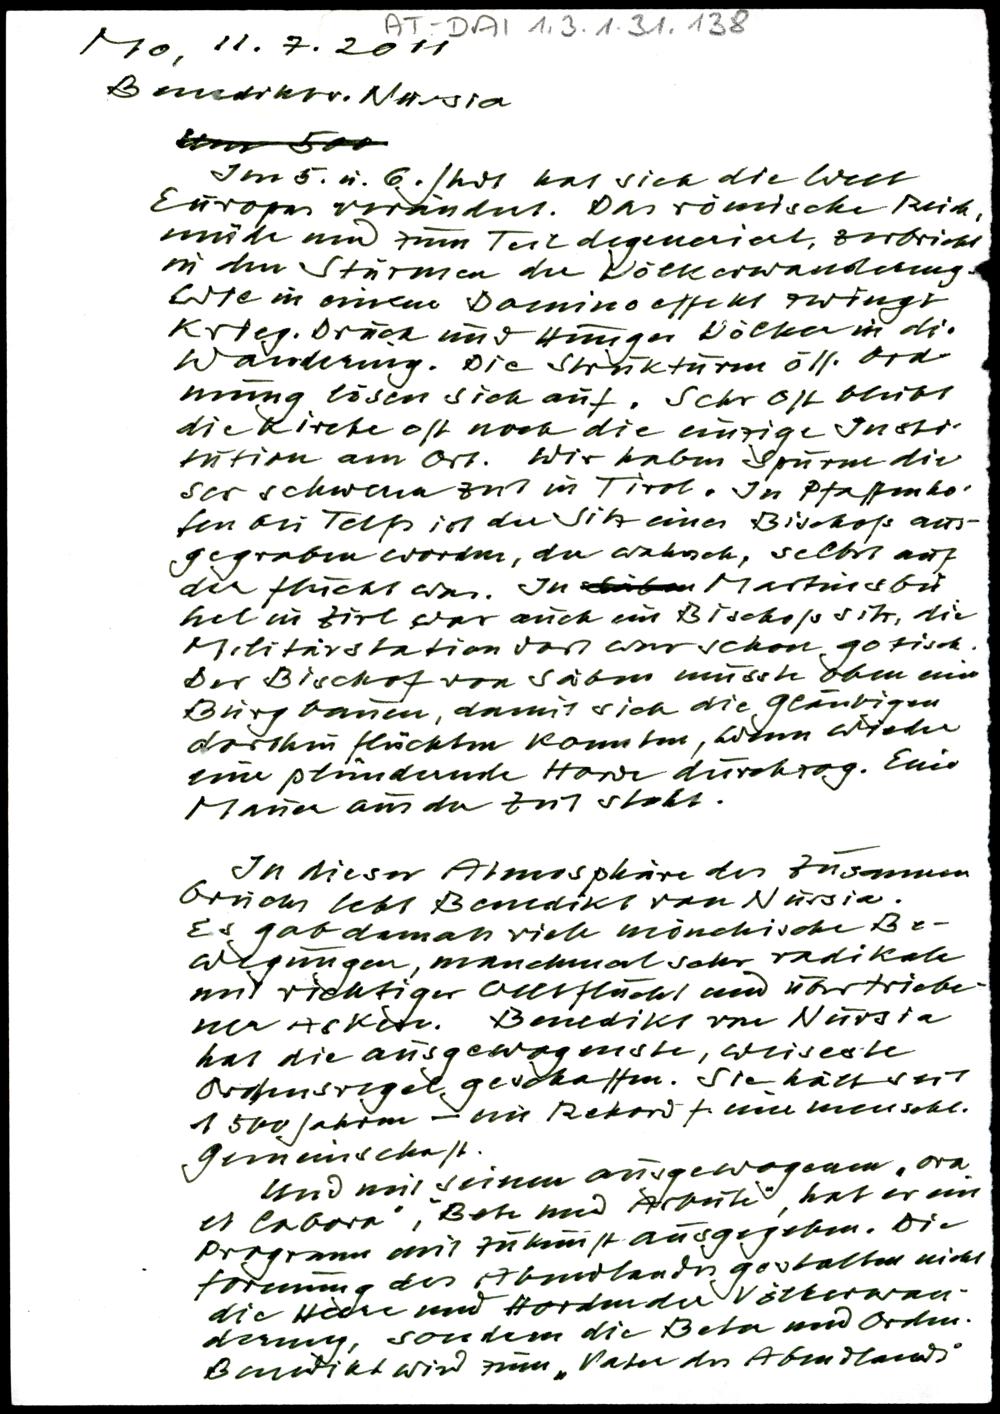 AT-DAI 1.3.1.31.138
Mo, 11.7.2011
Benedikt v. Nursia
Um 500
Im 5. u. 6. Jhdt hat sich die Welt
Europas verändert. Das römische Reich,
müde und zum Teil degeneriert, zerbricht
in den Stürmen der Völkerwanderung.
Wie in einem Dominoeffekt zwingt
Krieg, Druck und Hunger Völker in die
Wanderung. Die Strukturen öff. Ord-
nung lösen sich auf. Sehr oft bleibt
die Kirche oft noch die einzige Insti-
tution am Ort. Wir haben Spuren die
ser schweren Zeit in Tirol. In Pfaffenho-
fen bei Telfs ist der Sitz eines Bischofs aus-
gegraben worden, der wahrsch. selbst auf
der Flucht war. In Säben Martinsbü
hel in Zirl war auch ein Bischofssitz, die
Militärstation dort war schon gotisch.
Der Bischof von Säben musste oben eine
Burg bauen, damit sich die Gläubigen
dorthin flüchten konnten, wenn wieder
eine plündernde Horde durchzog. Eine
Mauer aus der Zeit steht.
In dieser Atmosphäre des Zusammen
bruchs lebt Benedikt von Nursia.
Es gab damals viele mönchische Be-
wegungen, manchmal sehr radikale
mit richtiger Weltflucht und übertriebe-
ner Askese. Benedikt von Nursia
hat die ausgewogenste, weiseste
Ordensregel geschaffen. Sie hält seit
1500 Jahren – ein Rekord f. eine menschl.
Gemeinschaft.
Und mit seinem ausgewogenen „ora
et labora", „Bete und Arbeite", hat er ein
Programm mit Zukunft ausgegeben. Die
Formung des Abendlandes gestalten nicht
die Heere und Horden der Völkerwan-
derung, sondern die Beter und Orden.
Benedikt wird zum „Vater des Abendlands